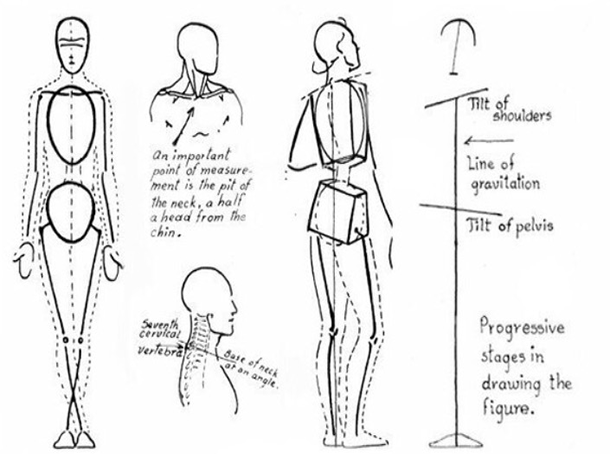 An important
point of measure-
ment is the pit of
the neck, a half
a head from the
chin.
Seventh
cervical
vertebra
Base of neck
at an angle.
Tilt of
shoulders
Line of
gravitation
Tilt of pelvis
Progressive
stages in
drawing the
figure.